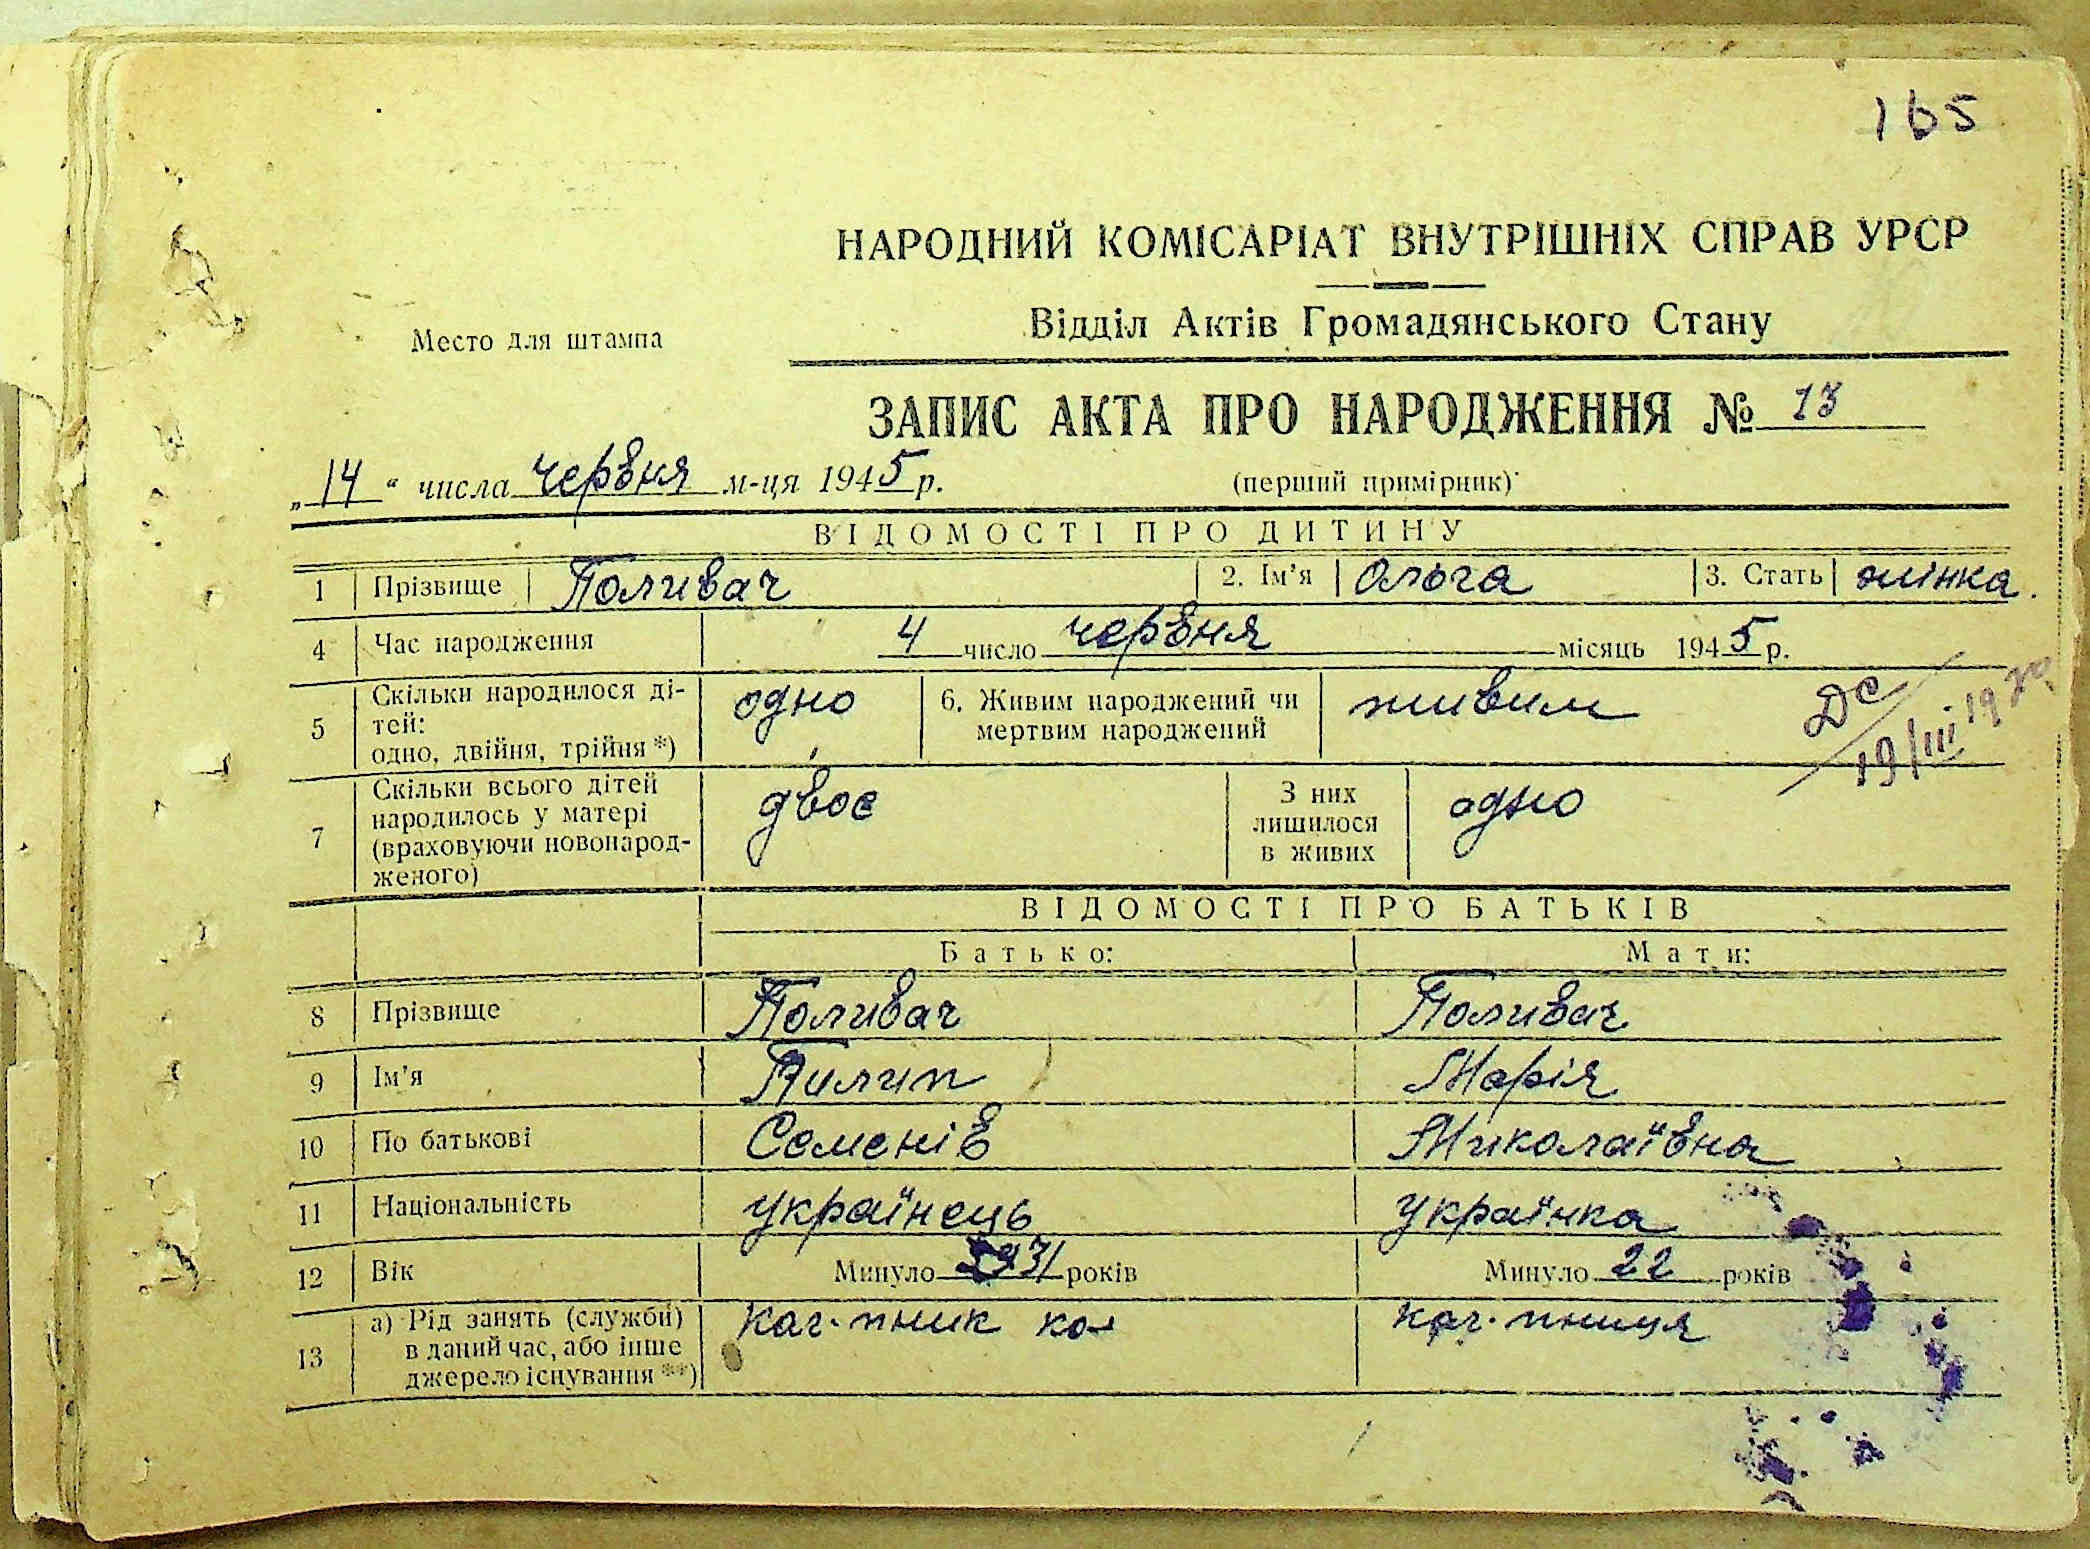 165
НАРОДНИЙ КОМІСАРІАТ ВНУТРІШНІХ СПРАВ УРСР
Відділ Актів Громадянського Стану
Место для штампа
ЗАПИС АКТА ПРО НАРОДЖЕННЯ № 13
„14“ числа червня м-ця 1945 р.
(перший примірник)
ВІДОМОСТІ ПРО ДИТИНУ
1 Прізвище Поливач 2. Ім'я Ольга 3. Стать жінка.
4 Час народження 4 число червня місяць 1945 р.
5 Скільки народилося ді-
тей:
одно, двійня, трійня *) одно 6. Живим народжений чи
мертвим народжений живим
ДС
19/III 1970
7 Скільки всього дітей
народилось у матері
(враховуючи новонарод-
женого) двоє З них
лишилося
в живих одно
ВІДОМОСТІ ПРО БАТЬКІВ
Батько: Мати:
8 Прізвище Поливач Поливач
9 Ім'я Пилип Марія
10 По батькові Семенів Миколаївна
11 Національність українець українка
12 Вік Минуло 31 років Минуло 22 років
13 а) Рід занять (служби)
в даний час, або інше
джерело існування **)